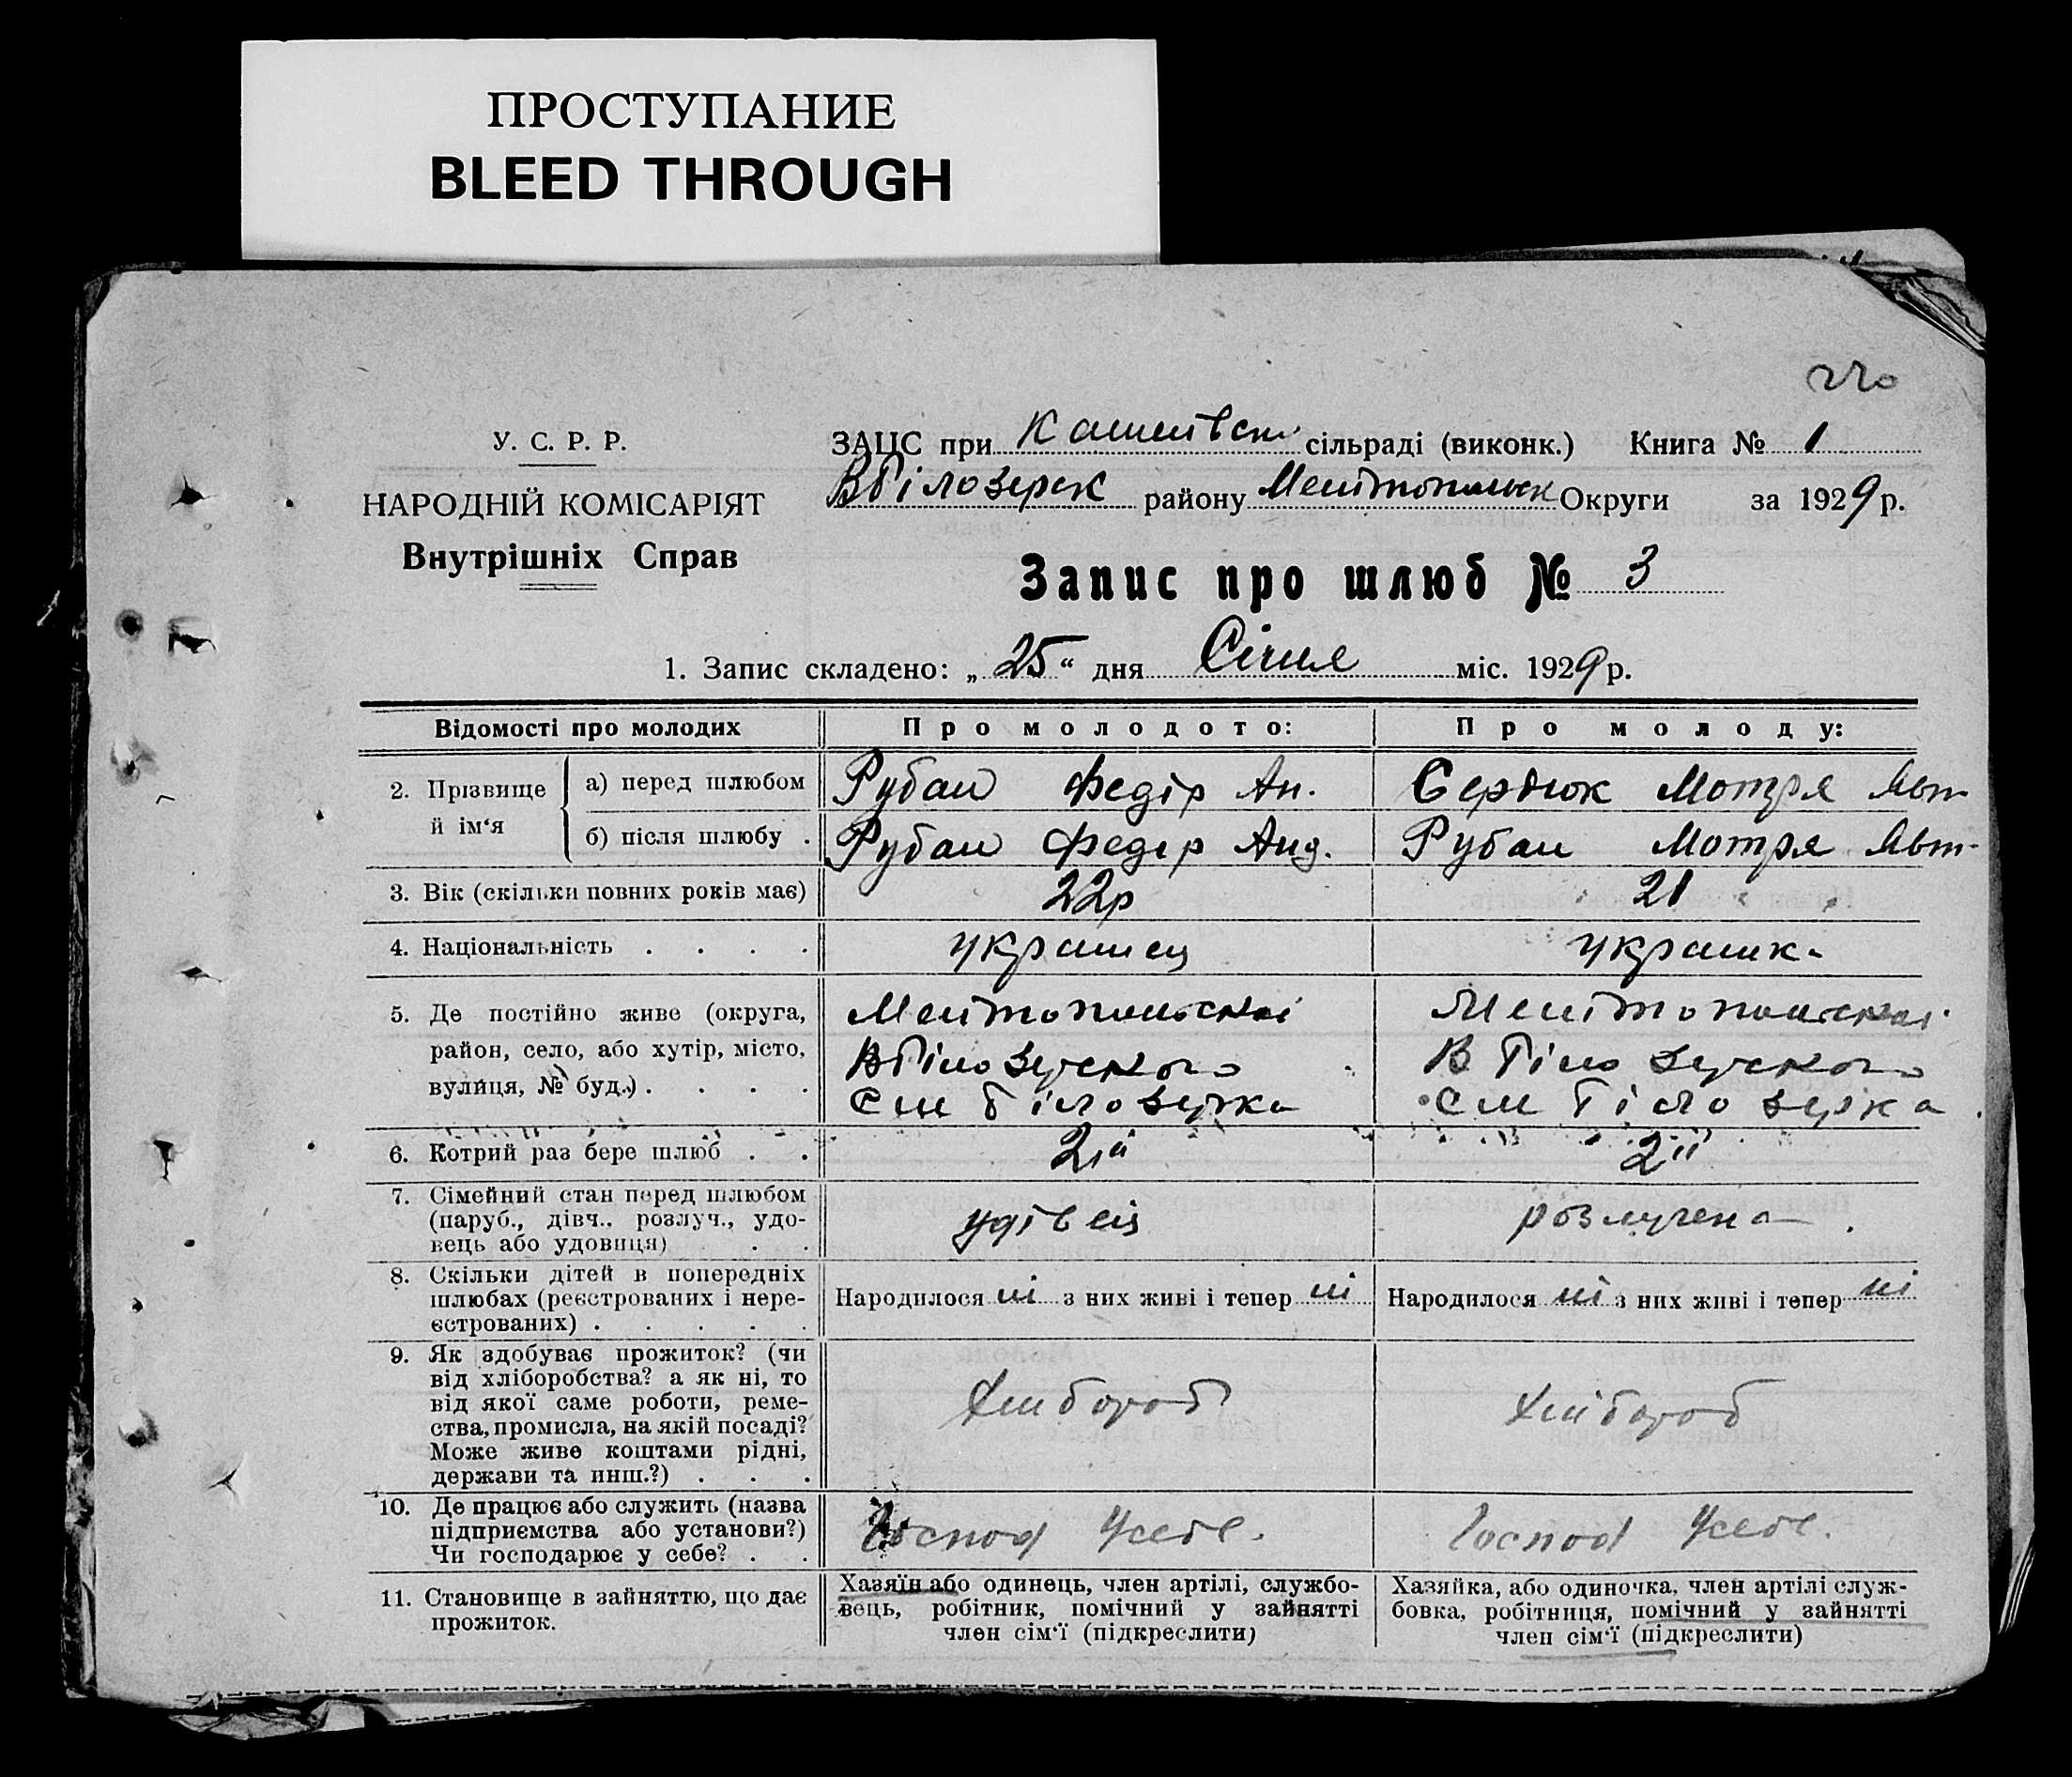 ПРОСТУПАНИЕ
BLEED THROUGH
220
У. С. Р. Р.
НАРОДНІЙ КОМІСАРІЯТ
Внутрішніх Справ
ЗАЦС при сільраді (виконк.) Книга № 1
ВБілозерск району Мелітопольск Округи за 1929 р.
Запис про шлюб № 3
1. Запис складено: „25“ дня Січня міс. 1929 р.
Відомості про молодих Про молодого: Про молоду:
2. Прізвище й ім‘я
а) перед шлюбом Рубан Федір Ан. Сердюк Мотря Авт
б) після шлюбу . Рубан Федір Анд. Рубан Мотря Авт-
3. Вік (скільки повних років має) 22р 21
4. Національність . . . . украинец украинк-
5. Де постійно живе (округа,
район, село, або хутір, місто,
вулиця, № буд.) . . . .
Мелітопольскої
ВБілозерского
См Білозерка
Мелітопольскої
В Білозерского
См Білозерка
6. Котрий раз бере шлюб . . 2ій 2ії
7. Сімейний стан перед шлюбом
(паруб., дівч., розлуч., удо-
вець або удовиця) . .
удівец розлучена
8. Скільки дітей в попередніх
шлюбах (реєстрованих і нере-
єстрованих) . . . . .
Народилося ні з них живі і тепер ні
Народилося ні з них живі і тепер ні
9. Як здобуває прожиток? (чи
від хліборобства? а як ні, то
від якої саме роботи, реме-
ства, промисла, на якій посаді?
Може живе коштами рідні,
держави та инш.?) . . .
Хлібороб
Хлібороб
10. Де працює або служить (назва
підприємства або установи?)
Чи господарює у себе? . .
Господ Усебе.
Господ Усебе.
11. Становище в зайняттю, що дає
прожиток.
Хазяїн або одинець, член артілі, службо-
вець, робітник, помічний у зайнятті
член сім‘ї (підкреслити)
Хазяйка, або одиночка, член артілі служ-
бовка, робітниця, помічний у зайнятті
член сім‘ї (підкреслити)